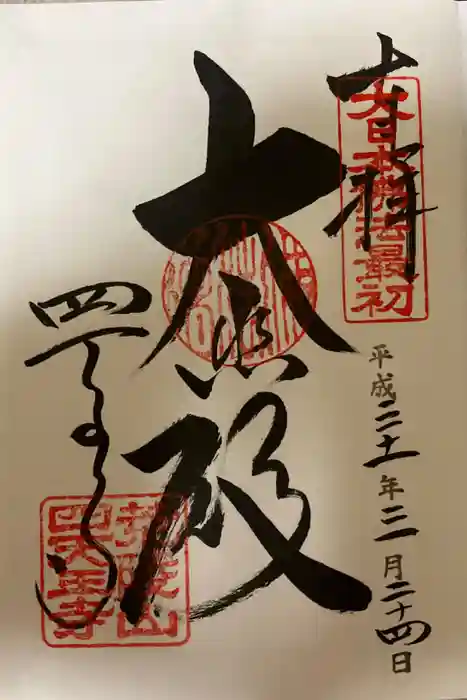 奉拝
大日本佛法最初
平成二十一年三月二十四日
大悲殿
四天王寺
荒陵山
四天王寺